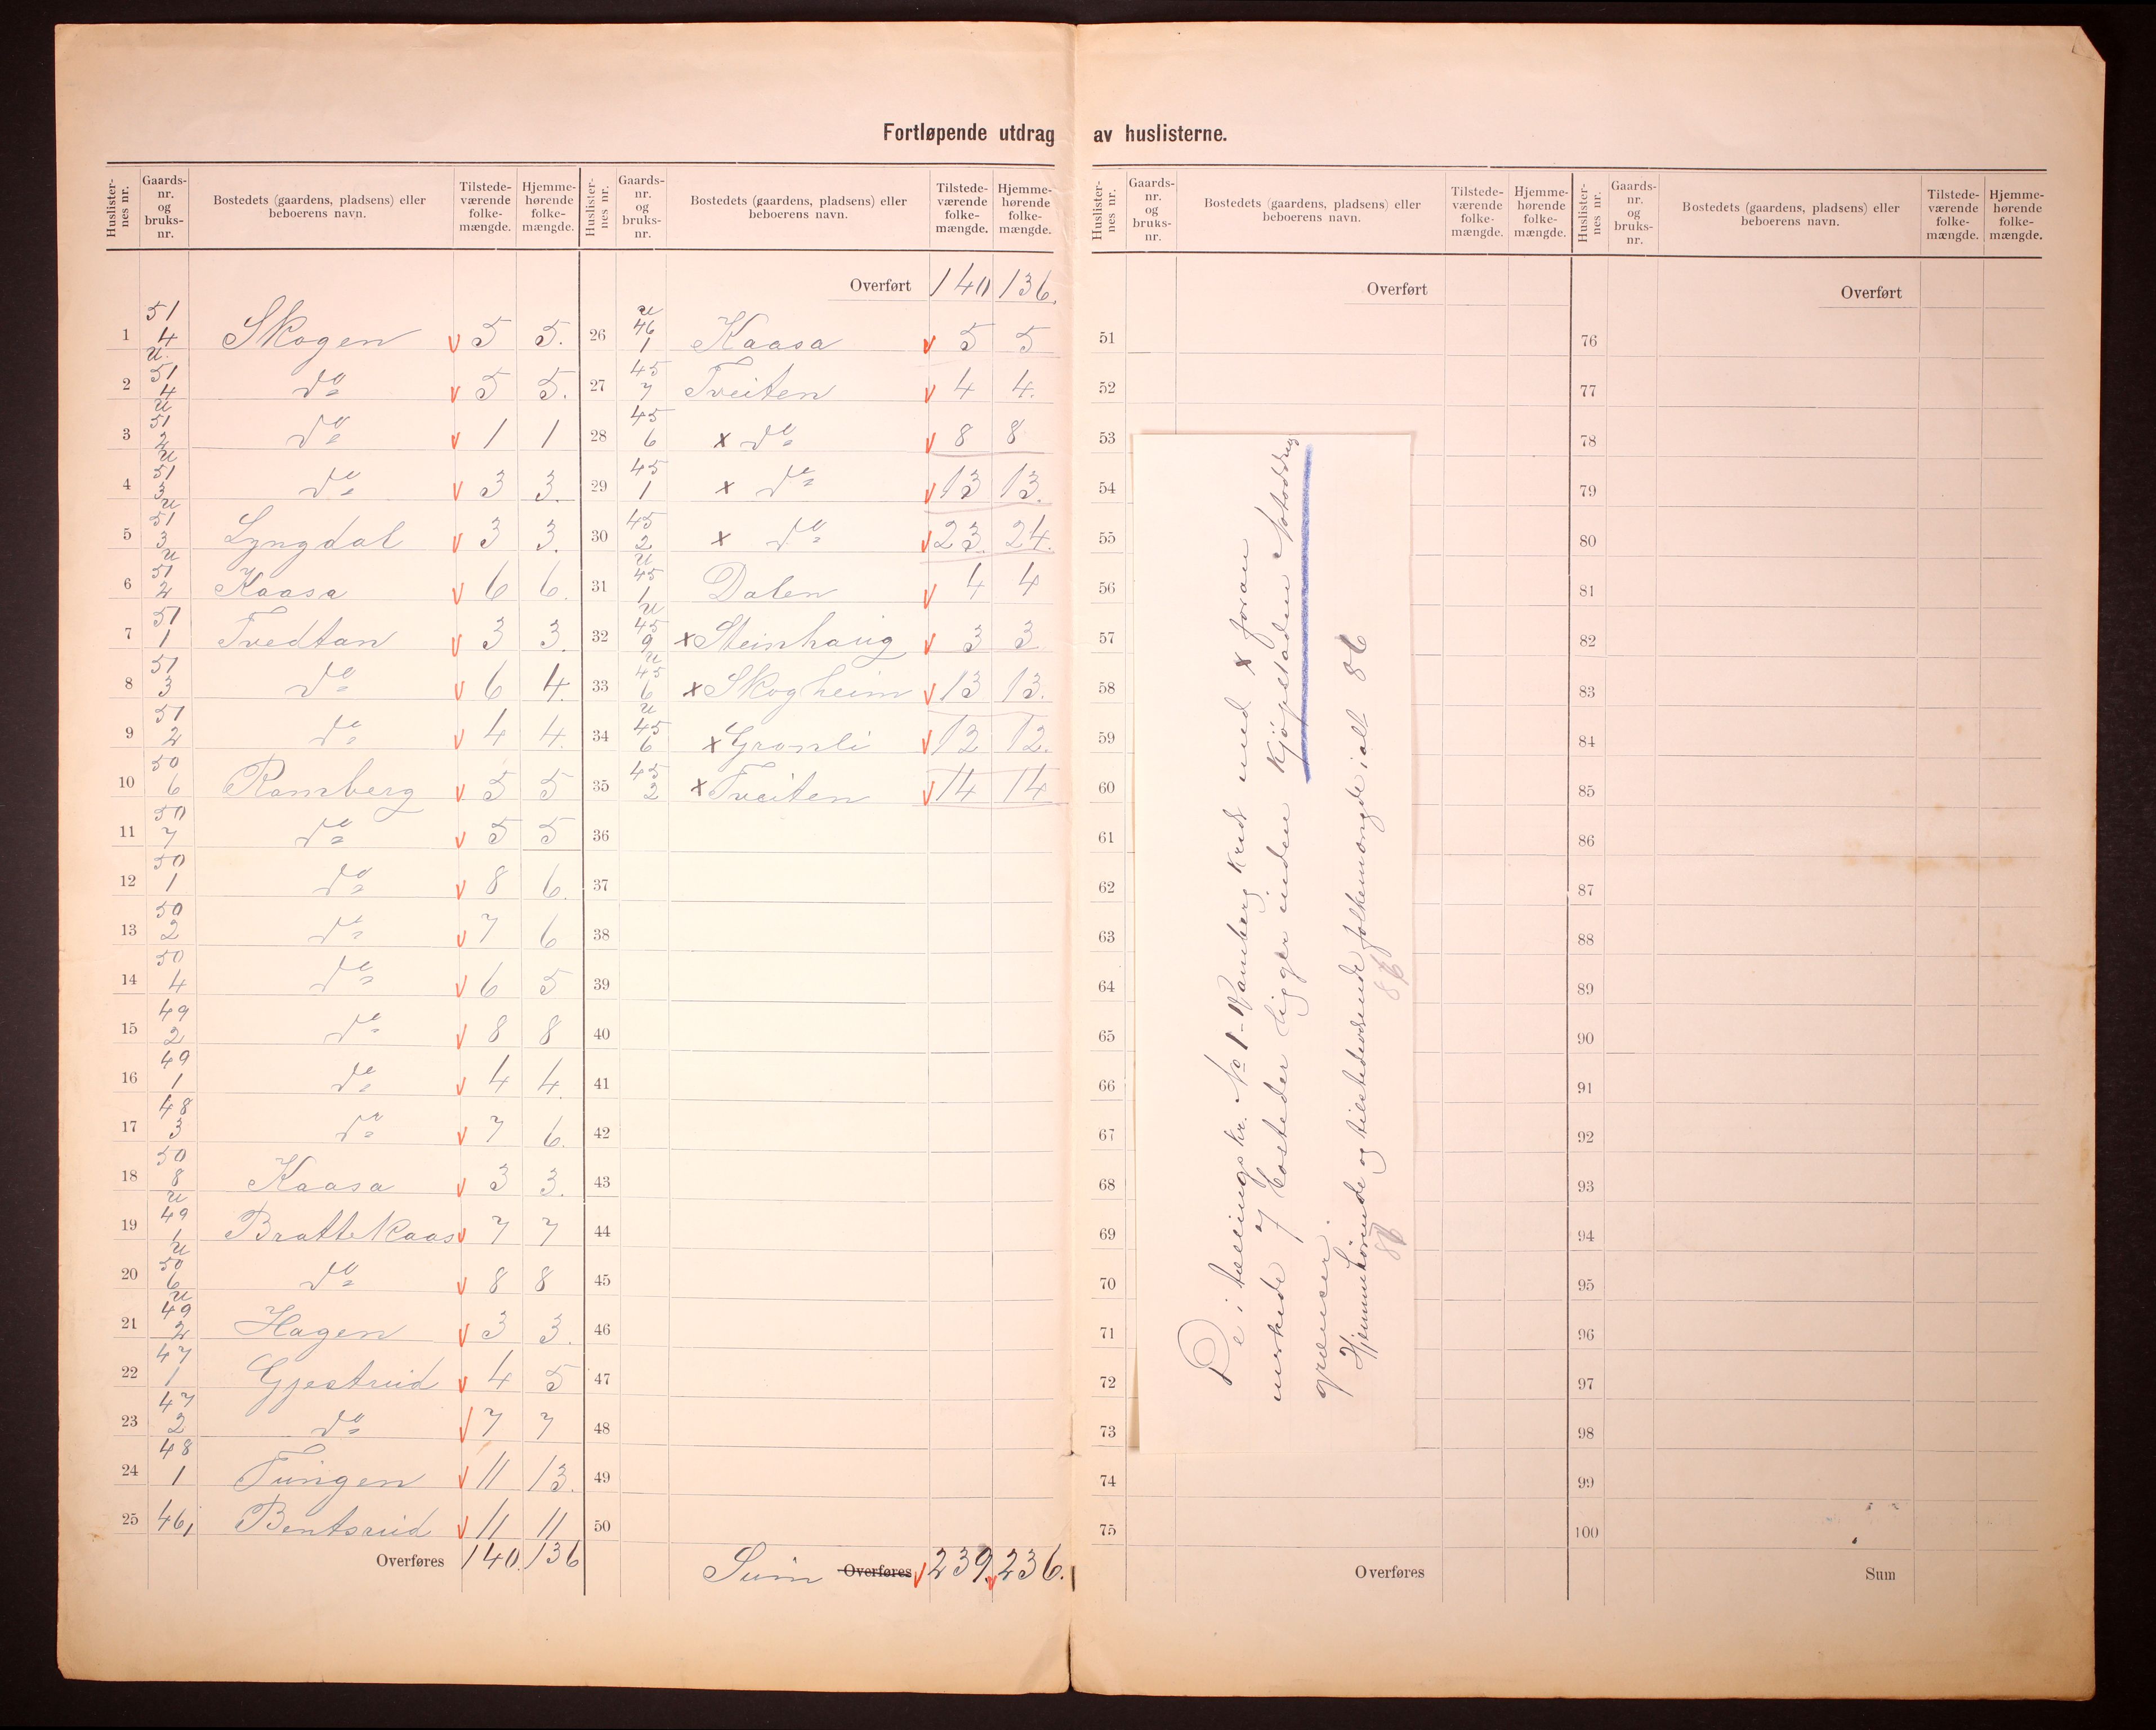 Fortløpende utdrag av huslisterne.
Huslisternes nr. Gaards-nr. og bruks-nr. Bostedets (gaardens, pladsens) eller beboerens navn. Tilstedeværende folkemængde. Hjemmehørende folkemængde.
1 51 4 u. Skogen 5 5.
2 51 4 u do 5 5.
3 51 2 u do 1 1
4 51 3 u do 3 3.
5 51 3 u Lyngdal 3 3.
6 51 2 Kaasa 6 6.
7 51 1 Tvedtan 3 3.
8 51 3 do 6 4.
9 51 2 do 4 4.
10 50 6 Ramberg 5 5
11 50 7 do 5 5
12 50 1 do 8 6.
13 50 2 do 7 6
14 50 4 do 6 5
15 49 2 do 8 8
16 49 1 do 4 4
17 48 3 do 7 6.
18 50 8 u Kaasa 3 3.
19 49 1 u Brattekaas 7 7
20 50 6 u do 8 8
21 49 2 Hagen 3 3.
22 47 1 Gjestrud 4 5
23 47 2 do 7 7
24 48 1 Tungen 11 13.
25 46 1 Bentsrud 11 11
Overføres 140. 136
Huslisternes nr. Gaards-nr. og bruks-nr. Bostedets (gaardens, pladsens) eller beboerens navn. Tilstedeværende folkemængde. Hjemmehørende folkemængde.
Overført 140 136.
26 u 46 1 Kaasa 5 5
27 45 7 Tveiten 4 4.
28 45 6 x do 8 8
29 45 1 x do 13 13.
30 45 2 u x do 23. 24.
31 45 1 u Dalen 4 4
32 45 9 u x Steinhaug 3 3
33 45 6 u x Skogheim 13 13.
34 45 6 x Gronli 12 12.
35 45 2 x Tveiten 14 14
36
37
38
39
40
41
42
43
44
45
46
47
48
49
50
Sum Overføres 239. 236.
Huslisternes nr. Gaards-nr. og bruks-nr. Bostedets (gaardens, pladsens) eller beboerens navn. Tilstedeværende folkemængde. Hjemmehørende folkemængde.
Overført
51
52
53
54
55
56
57
58
59
60
61
62
63
64
65
66
67
68
69
70
71
72
73
74
75
Overføres
De i tællingskr. No 1 - Ramberg kreds med x foran
merkede 7 bosteder ligger inden kjøpstaden Notoddens
grænser.
Hjemmehørende og tilstedeværende folkemængde i alt 86
86 86
Huslisternes nr. Gaards-nr. og bruks-nr. Bostedets (gaardens, pladsens) eller beboerens navn. Tilstedeværende folkemængde. Hjemmehørende folkemængde.
Overført
76
77
78
79
80
81
82
83
84
85
86
87
88
89
90
91
92
93
94
95
96
97
98
99
100
Sum